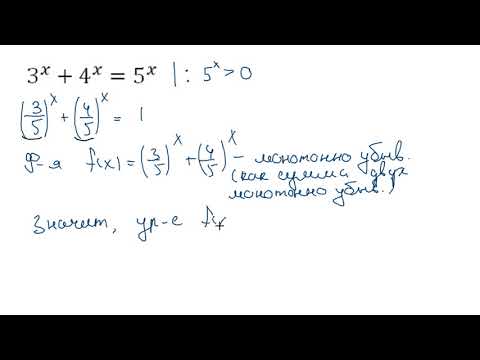 3^x + 4^x = 5^x | : 5^x > 0
(3/5)^x + (4/5)^x = 1
ф-я f(x) = (3/5)^x + (4/5)^x - монотонно убыв.
(как сумма двух
монотонно убыв.)
Значит, ур-е f